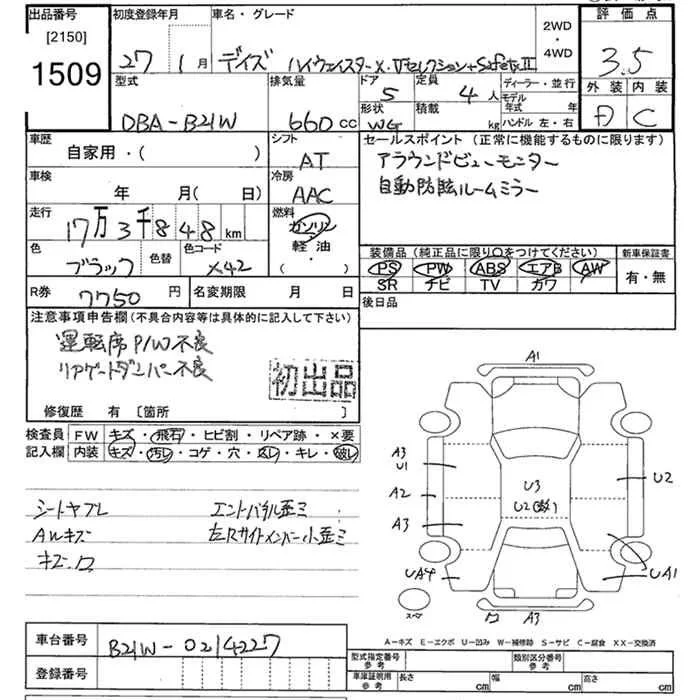 出品番号 初度登録年月 車名・グレード 評価点
[2150]
1509
27年 1月 デイズ ハイウェイスターX・Vセレクション+SafetyII
2WD
・
4WD
3.5
型式 排気量 ドア 定員 ディーラー・並行 外装 内装
DBA-B21W 660cc 5 4人 モデル年式 年
形状 積載 ハンドル 左・右
WG kg
D C
車歴 シフト セールスポイント (正常に機能するものに限ります)
自家用・( ) AT アラウンドビューモニター
車検 冷房 自動防眩ルームミラー
年 月(日) AAC
走行 燃料
17万3千848km ガソリン
・
軽油
・
( )
色 色替 色コード
ブラック X42
装備品(純正品に限り○をつけてください) 新車保証書
PS・PW・ABS・エアB・AW 有・無
SR ナビ TV カワ
R券 7750円 名変期限 月 日 後日品
注意事項申告欄(不具合内容等は具体的に記入して下さい)
運転席P/W不良
リアゲートダンパー不良
初出品
修復歴 有 [箇所 ]
検査員 FW キズ・飛石・ヒビ割・リペア跡・×要
記入欄 内装 キズ・汚レ・コゲ・穴・スレ・キレ・破レ
シートヤブレ エンドパネル歪ミ
AWキズ 左Rサイドメンバー小歪ミ
A1
A3
U1
A2
A3
U3
U2
U2
UA4
UA1
スペア
A3
A-キズ E-エクボ U-凹み W-補修跡 S-サビ C-腐食 XX-交換済
車台番号 B21W-0214227
登録番号
型式指定番号 参考 類別区分番号 参考
車庫証明用 参考 長さ cm 幅 cm 高さ cm